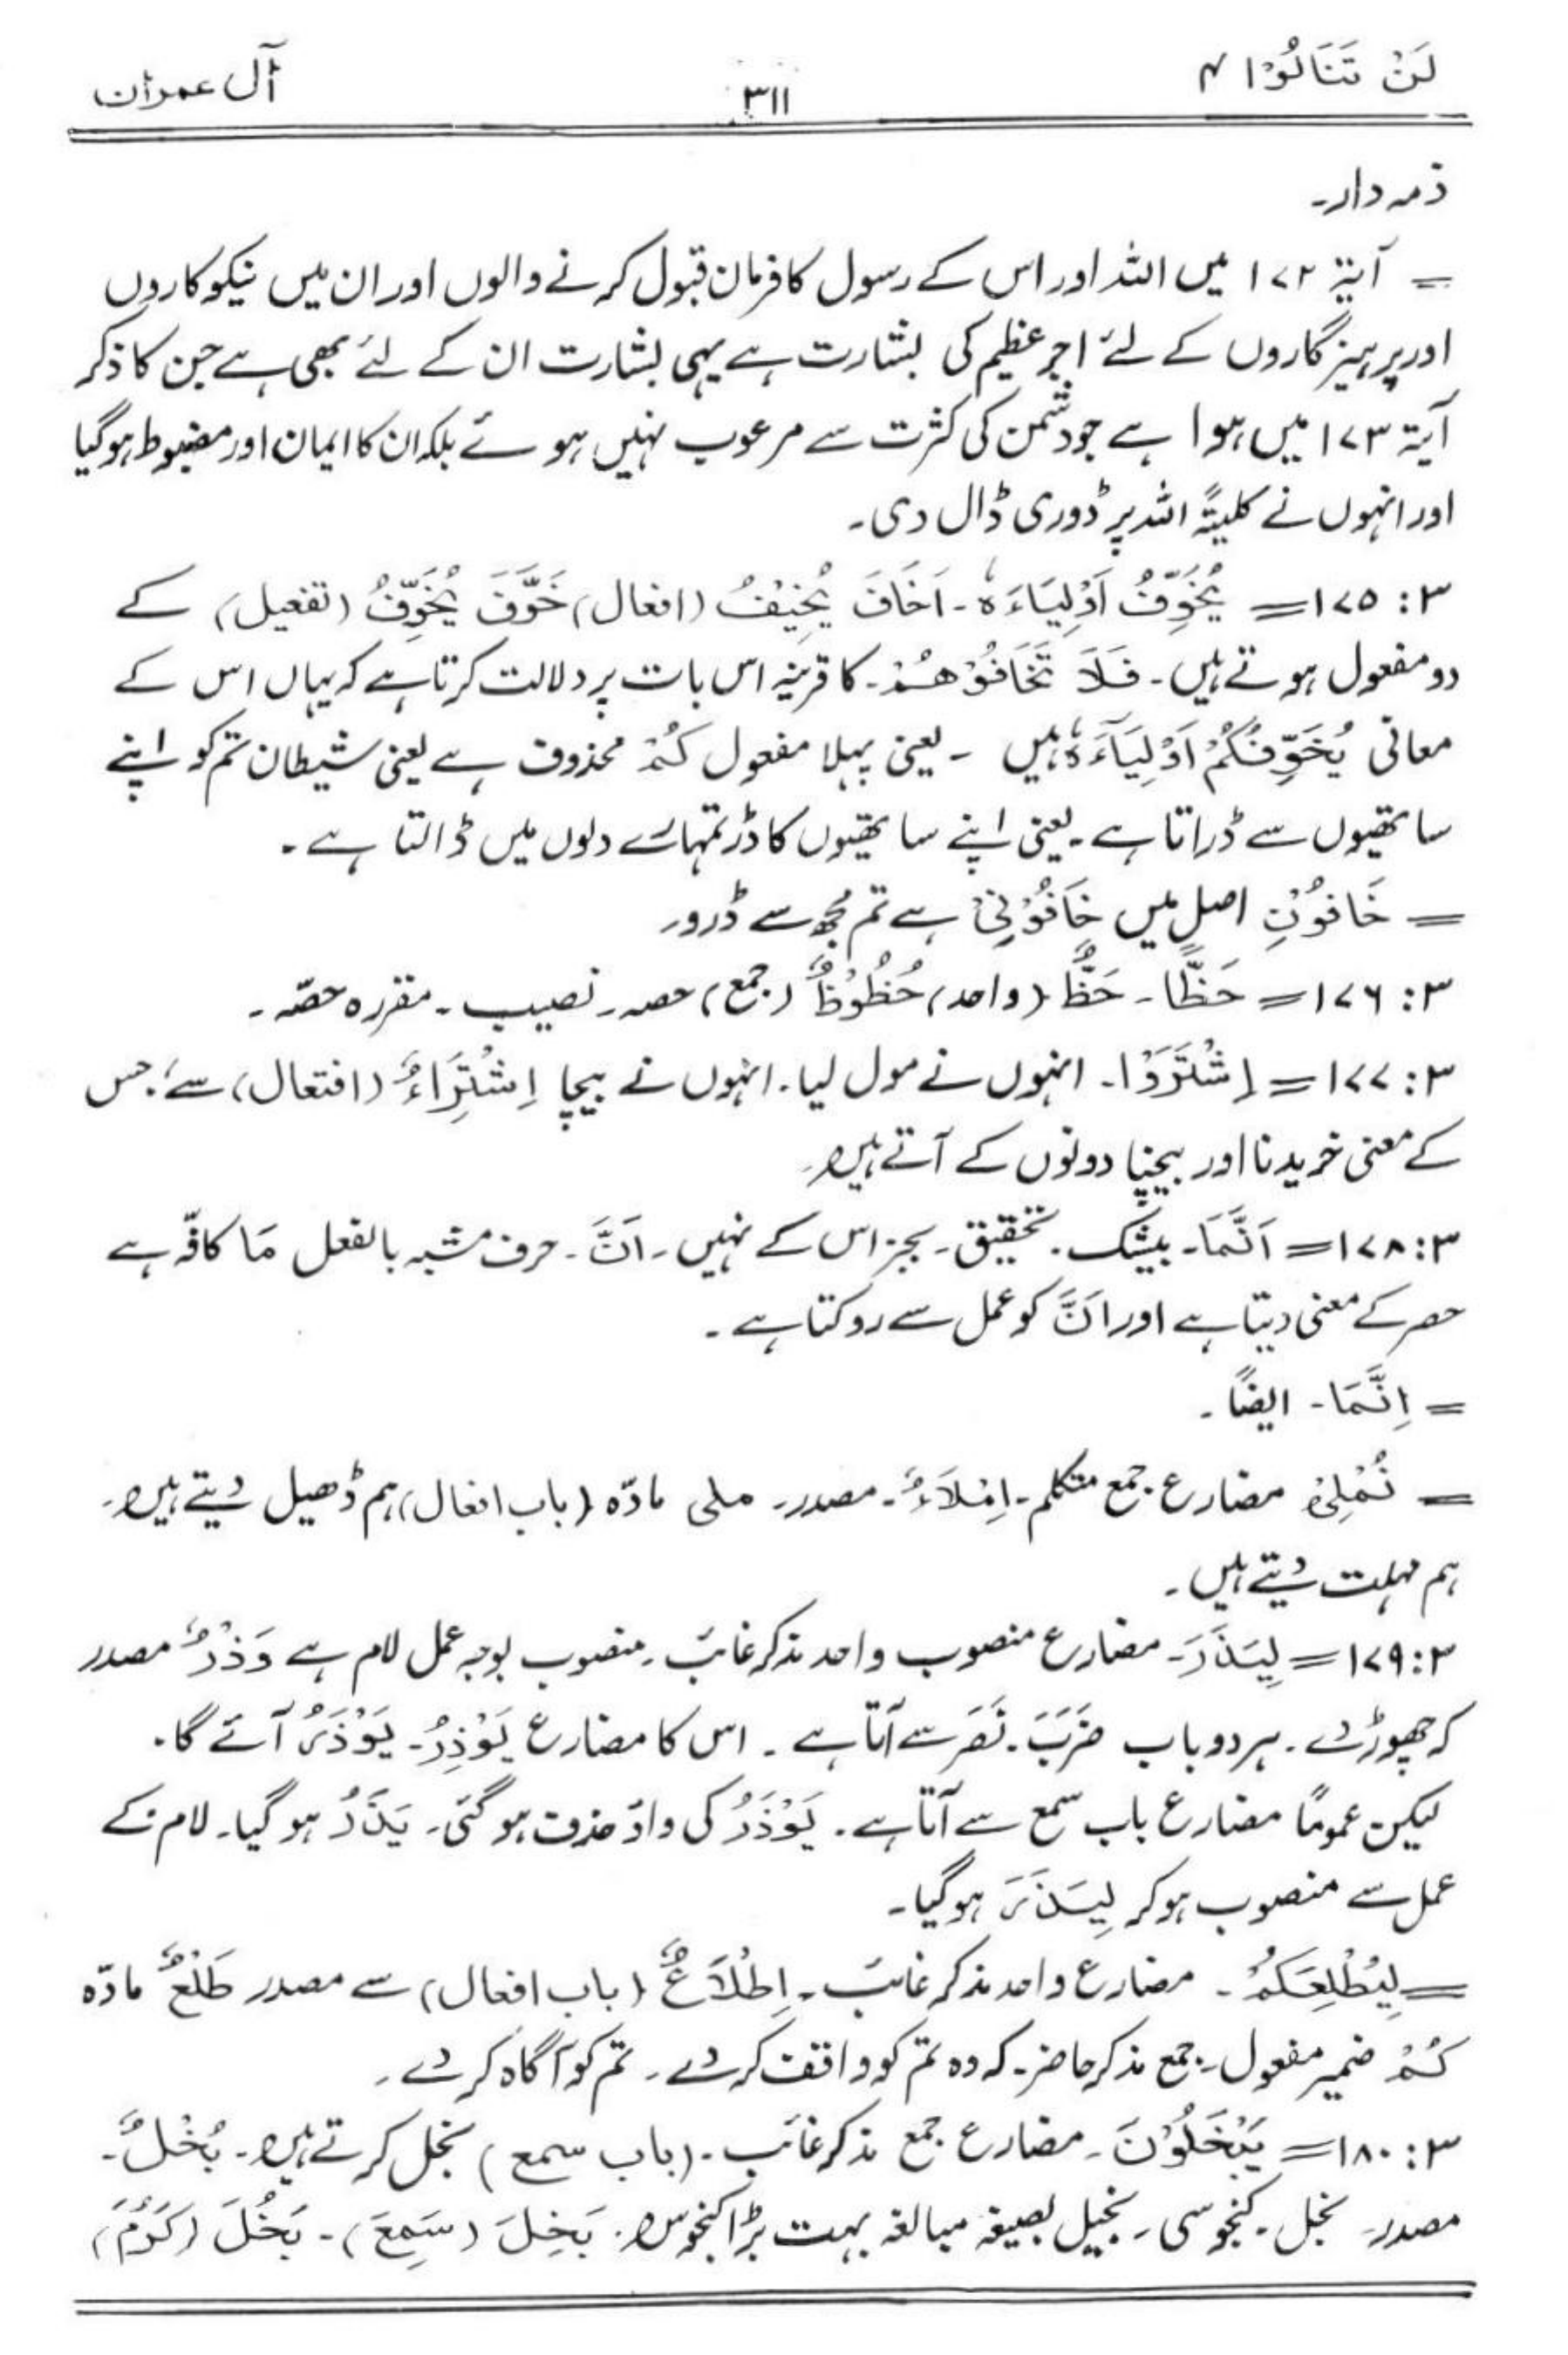 لَنْ تَنَالُوْا ۴
۳۱۱
آل عمران
ذمہ دار۔
= آیۃ ۱۷۲ میں اللہ اور اس کے رسول کا فرمان قبول کرنے والوں اور ان میں نیکوکاروں
اور پرہیزگاروں کے لئے اجر عظیم کی بشارت ہے یہی بشارت ان کے لئے بھی ہے جن کا ذکر
آیۃ ۱۷۳ میں ہوا ہے جو دشمن کی کثرت سے مرعوب نہیں ہوئے بلکہ ان کا ایمان اور مضبوط ہو گیا
اور انہوں نے کلیۃً اللہ پر ڈوری ڈال دی۔
۳: ۱۷۵ = یُخَوِّفُ اَوْلِیَاءَہٗ۔ اَخَافَ یُخِیْفُ (افعال) خَوَّفَ یُخَوِّفُ (تفعیل) کے
دو مفعول ہوتے ہیں۔ فَلَا تَخَافُوْھُمْ۔ کا قرینہ اس بات پر دلالت کرتا ہے کہ یہاں اس کے
معانی یُخَوِّفُکُمْ اَوْلِیَآءَہٗ ہیں ۔ یعنی پہلا مفعول کُمْ محذوف ہے یعنی شیطان تم کو اپنے
ساتھیوں سے ڈراتا ہے۔ یعنی اپنے ساتھیوں کا ڈر تمہارے دلوں میں ڈالتا ہے ۔
= خَافُوْنِ اصل میں خَافُوْنِیْ ہے تم مجھ سے ڈرو۔
۳: ۱۷۶ = حَظًّا۔ حَظٌّ (واحد) حُظُوْظٌ (جمع) حصہ۔ نصیب۔ مقررہ حصّہ۔
۳: ۱۷۷ = اِشْتَرَوُا۔ انہوں نے مول لیا۔ انہوں نے بیچا اِشْتِرَاءٌ (افتعال) سے، جس
کے معنی خریدنا اور بیچنا دونوں کے آتے ہیں۔
۳: ۱۷۸ = اَنَّمَا۔ بیشک۔ تحقیق۔ بجز اس کے نہیں۔ اَنَّ۔ حرف مشبہ بالفعل مَا کافّہ ہے
حصر کے معنی دیتا ہے اور اَنَّ کو عمل سے روکتا ہے ۔
= اِنَّمَا۔ ایضًا ۔
= نُمْلِیْ مضارع جمع متکلم۔ اِمْلَاءٌ۔ مصدر۔ ملی مادّہ (باب افعال) ہم ڈھیل دیتے ہیں۔
ہم مہلت دیتے ہیں ۔
۳: ۱۷۹ = لِیَذَرَ۔ مضارع منصوب واحد مذکر غائب۔ منصوب بوجہ عمل لام ہے وَذْرٌ مصدر
کہ چھوڑ دے ۔ ہر دو باب ضَرَبَ۔ نَصَرَ سے آتا ہے ۔ اس کا مضارع یَوْذِرُ۔ یَوْذَرُ آئے گا۔
لیکن عمومًا مضارع باب سمع سے آتا ہے ۔ یَوْذَرُ کی واؤ حذف ہو گئی۔ یَذَرُ ہو گیا۔ لام کے
عمل سے منصوب ہو کر لِیَذَرَ ہو گیا۔
= لِیُطْلِعَکُمْ ۔ مضارع واحد مذکر غائب۔ اِطْلَاعٌ (باب افعال) سے مصدر طَلْعٌ مادّہ
کُمْ ضمیر مفعول۔ جمع مذکر حاضر۔ کہ وہ تم کو واقف کر دے۔ تم کو آگاہ کر دے ۔
۳: ۱۸۰ = یَبْخَلُوْنَ۔ مضارع جمع مذکر غائب ۔ (باب سمع) بخل کرتے ہیں۔ بُخْلٌ۔
مصدر۔ بخل۔ کنجوسی۔ بخیل بصیغہ مبالغہ بہت بڑا کنجوس۔ بَخِلَ (سَمِعَ)۔ بَخُلَ (کَرُمَ)